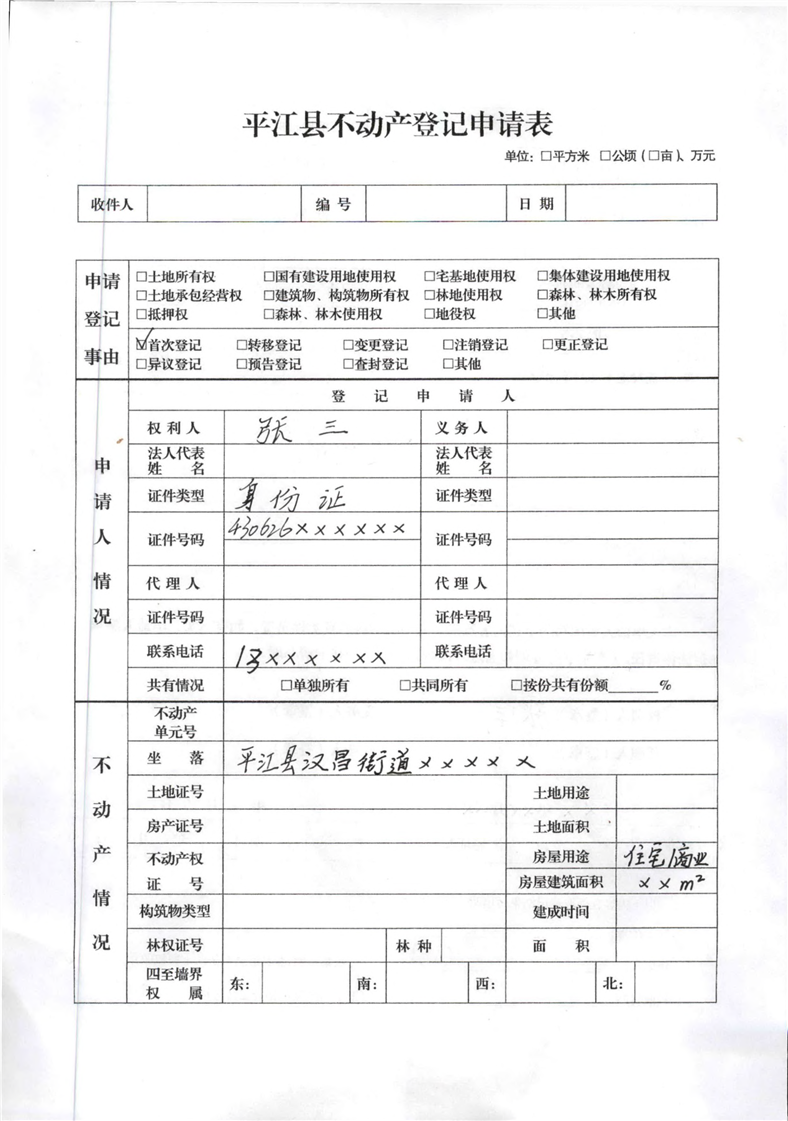 平江县不动产登记申请表
单位：□平方米 □公顷（□亩）、万元
收件人 编号 日期
申请登记事由
□土地所有权 □国有建设用地使用权 □宅基地使用权 □集体建设用地使用权
□土地承包经营权 □建筑物、构筑物所有权 □林地使用权 □森林、林木所有权
□抵押权 □森林、林木使用权 □地役权 □其他
☑首次登记 □转移登记 □变更登记 □注销登记 □更正登记
□异议登记 □预告登记 □查封登记 □其他
申请人情况
登记申请人
权利人 张三 义务人
法人代表姓名 法人代表姓名
证件类型 身份证 证件类型
证件号码 430626×××××× 证件号码
代理人 代理人
证件号码 证件号码
联系电话 13×××××× 联系电话
共有情况 □单独所有 □共同所有 □按份共有份额______%
不动产情况
不动产单元号
坐落 平江县汉昌街道×××××
土地证号 土地用途
房产证号 土地面积
不动产权证号 房屋用途 住宅/商业
房屋建筑面积 ××m²
构筑物类型 建成时间
林权证号 林种 面积
四至墙界权属 东： 南： 西： 北：